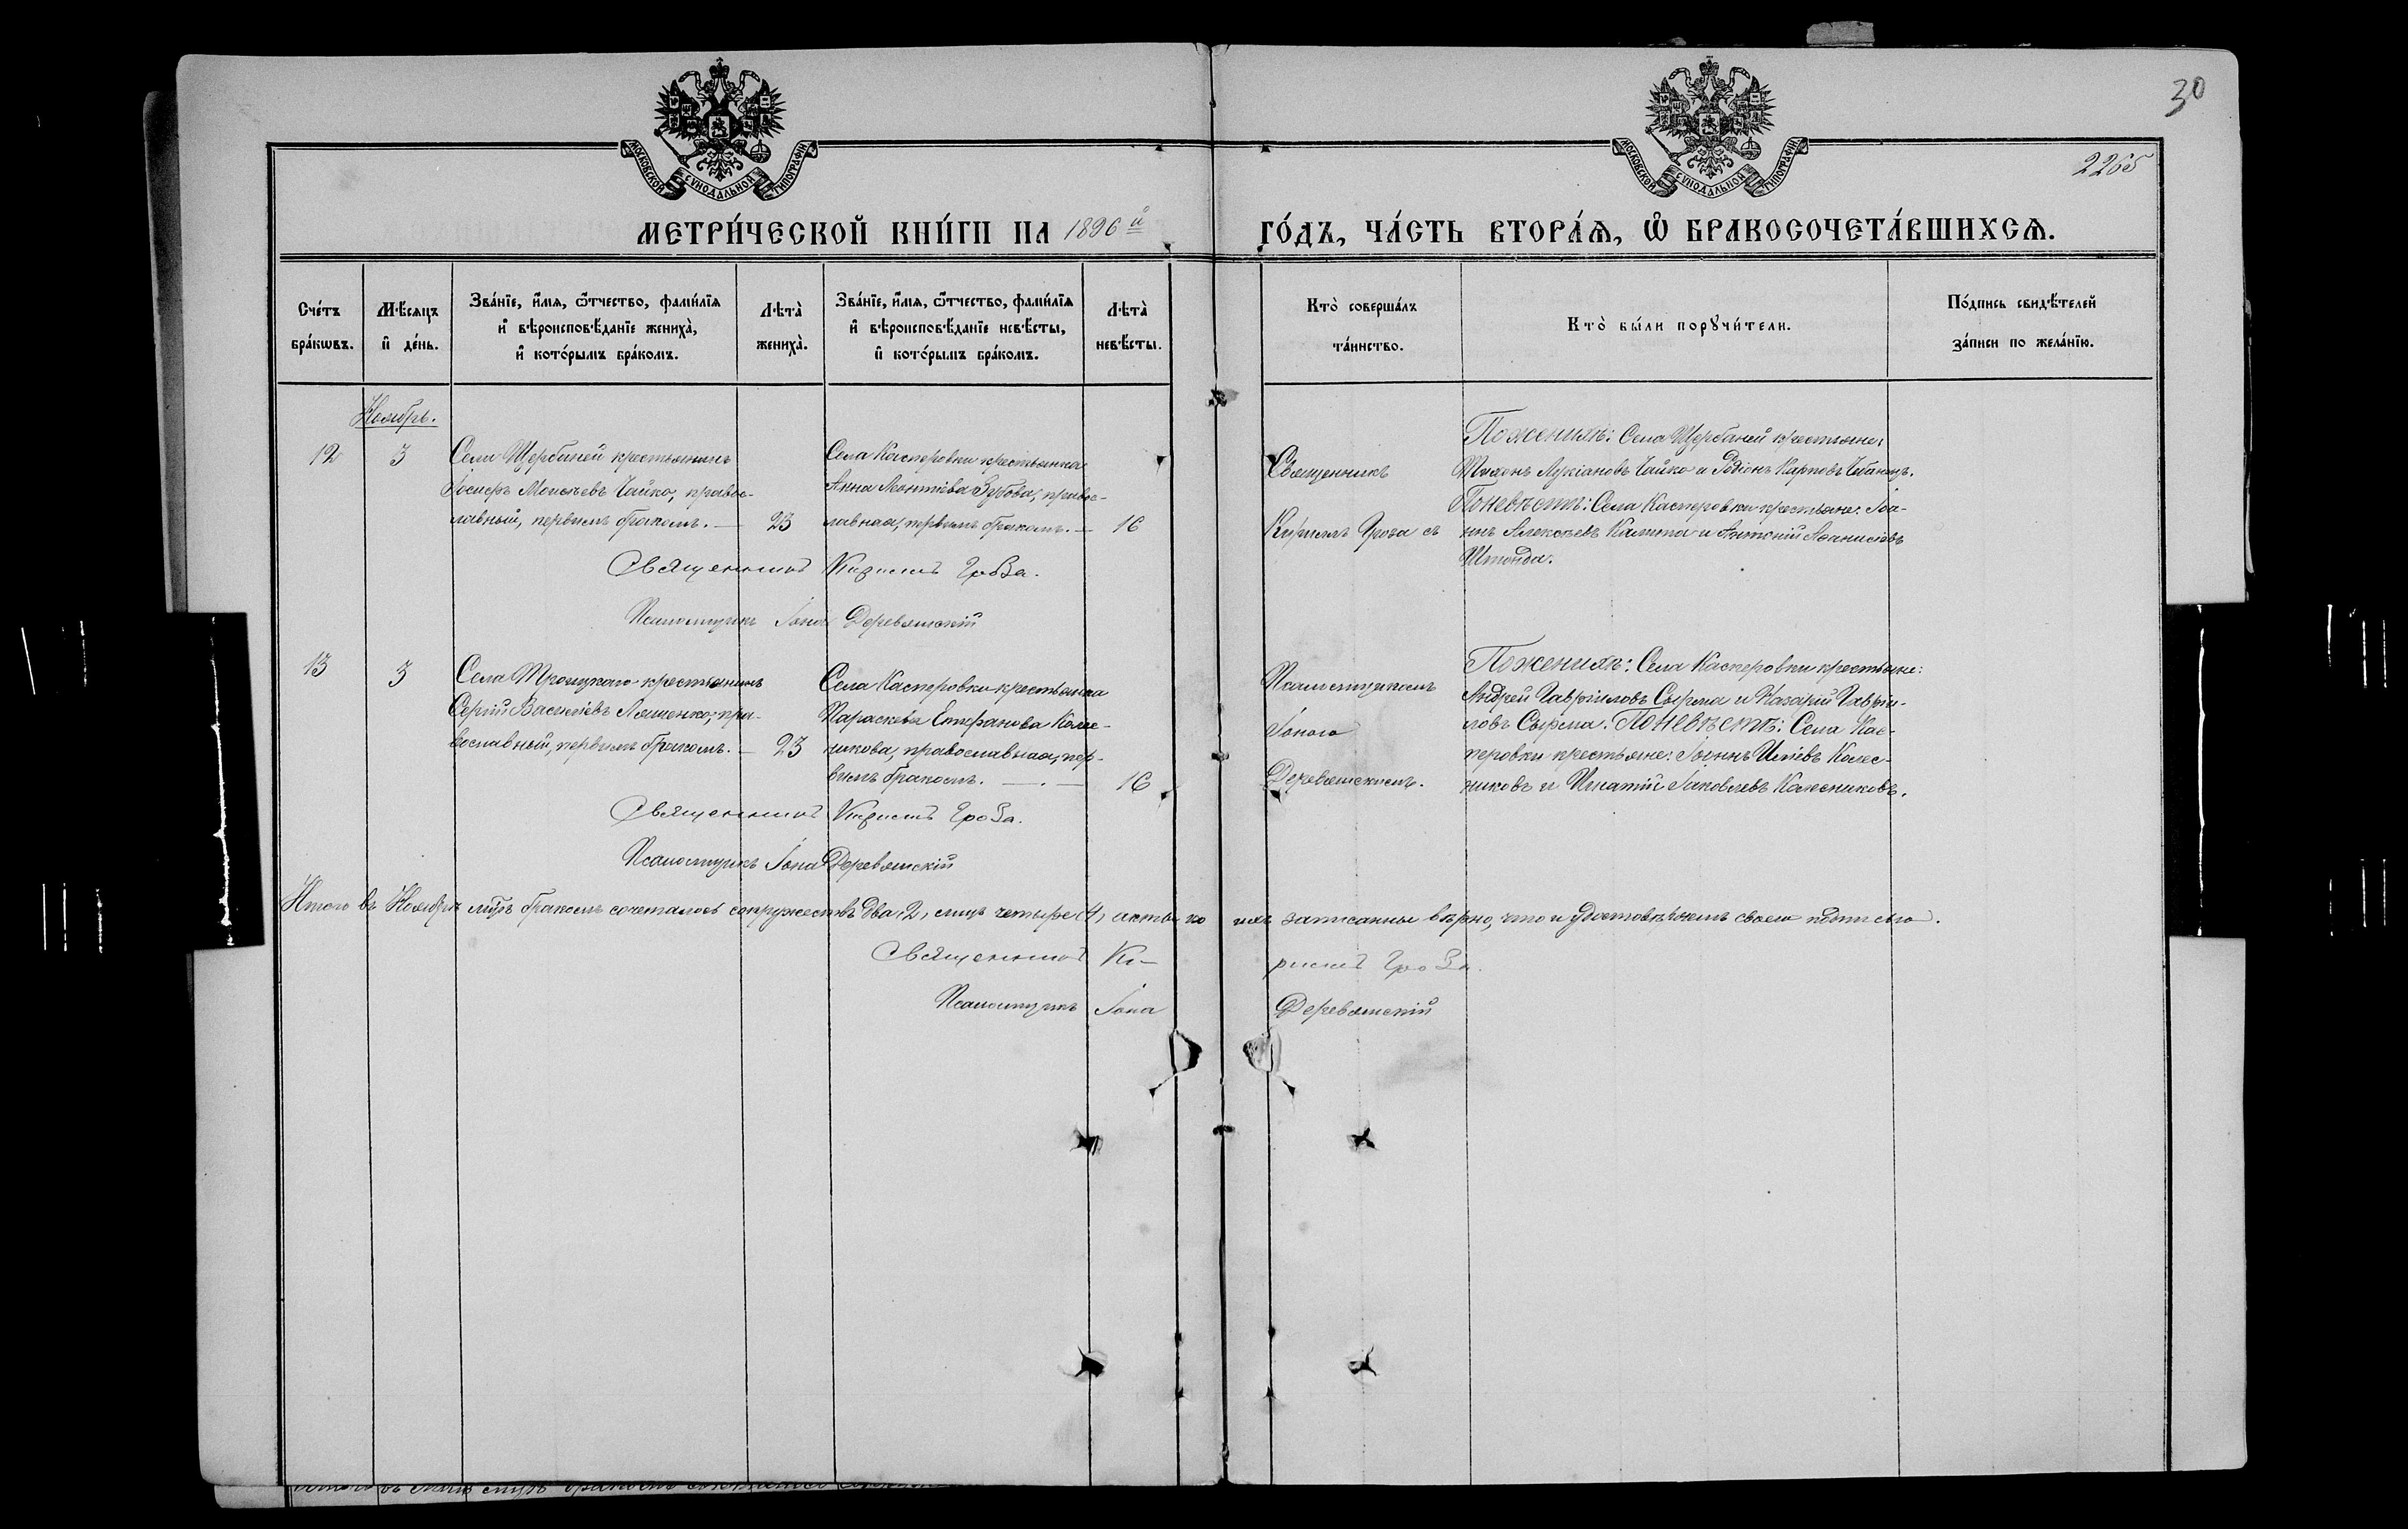 30
2265
МОСКОВСКОЙ СѴНОДАЛЬНОЙ ТИПОГРАФІИ
МОСКОВСКОЙ СѴНОДАЛЬНОЙ ТИПОГРАФІИ
МЕТРИ́ЧЕСКОЙ КНИ́ГИ НА 1896й ГО́ДЪ, ЧА́СТЬ ВТОРА́Ѧ, Ѡ҆ БРАКОСОЧЕТА́ВШИХСѦ.
Сче́тъ бра́кѡвъ.
Мѣ́сяцъ и҆ де́нь.
Зва́нїе, и҆́мя, ѻ҆́тчество, фамі́лїя и҆ вѣроисповѣ́данїе жениха̀, и҆ кото́рымъ бра́комъ.
Лѣта̀ жениха̀.
Зва́нїе, и҆́мя, ѻ҆́тчество, фамі́лїя и҆ вѣроисповѣ́данїе невѣ́сты, и҆ кото́рымъ бра́комъ.
Лѣта̀ невѣ́сты.
Кто̀ соверша́лъ та́инство.
Кто̀ бы́ли порꙋчи́тели.
По́дпись свидѣ́телей за́писи по жела́нїю.
Ноябрь.
12
3
Села Щербаней крестьянинъ
Іосифъ Моисеевъ Чайко, правос-
лавный, первымъ бракомъ. —
23
Села Касперовки крестьянка
Анна Леонтіева Зубова, правос-
лавная, первымъ бракомъ. —
16
Священникъ
Кириллъ Гроза съ
По женихѣ: Села Щербаней крестьяне:
Тихонъ Лукіановъ Чайко и Родіонъ Карповъ Чебанъ.
По невѣстѣ: Села Касперовки крестьяне: Іоа-
ннъ Алексѣевъ Калита и Антоній Афанасіевъ
Штонда.
Священникъ Кириллъ Гроза.
Псаломщикъ Іона Деревянскій
13
3
Села Троицкаго крестьянинъ
Сергій Василіевъ Ляшенко, пра-
вославный, первымъ бракомъ. —
23
Села Касперовки крестьянка
Параскева Стефанова Колес-
никова, православная, пер-
вымъ бракомъ. — . —
16
Псаломщикомъ
Іоною
Деревянскимъ.
По женихѣ: Села Касперовки крестьяне:
Андрей Гавріиловъ Сырма и Назарій Гавріи-
ловъ Сырма. По невѣстѣ: Села Кас-
перовки крестьяне: Іоаннъ Иліевъ Колес-
никовъ и Игнатій Іаковлевъ Колесниковъ.
Священникъ Кириллъ Гроза.
Псаломщикъ Іона Деревянскій
Итого въ Ноябрѣ м̃цѣ бракомъ сочеталось супружествъ два, 2, лицъ четыре, 4, акты по нихъ записанны вѣрно, что и удостовѣряемъ своею подписью.
Священникъ Ки-риллъ Гроза.
Псаломщикъ Іона Деревянскій